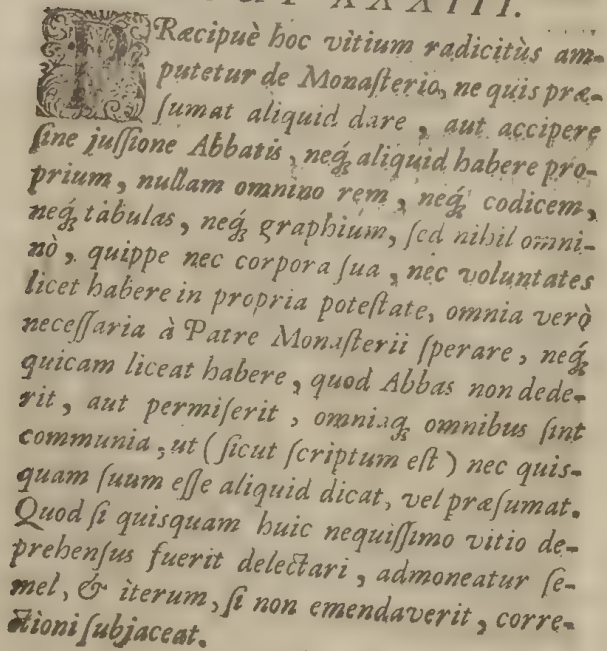 XXXIII.
PRæcipuè hoc vitium radicitùs am-
putetur de Monaſterio, ne quis præ-
ſumat aliquid dare, aut accipere
ſine juſſione Abbatis, neq́; aliquid habere pro-
prium, nullam omnino rem, neq́; codicem,
neq́; tabulas, neq́; graphium, ſed nihil omni-
nò, quippe nec corpora ſua, nec voluntates
licet habere in propria poteſtate, omnia verò
neceſſaria à Patre Monaſterii ſperare, neq́;
quicam liceat habere, quod Abbas non dede-
rit, aut permiſerit, omniaq́; omnibus ſint
communia, ut (ſicut ſcriptum eſt) nec quis-
quam ſuum eſſe aliquid dicat, vel præſumat.
Quod ſi quisquam huic nequiſſimo vitio de-
prehenſus fuerit delectari, admoneatur ſe-
mel, & iterum, ſi non emendaverit, corre-
ctioni ſubjaceat.